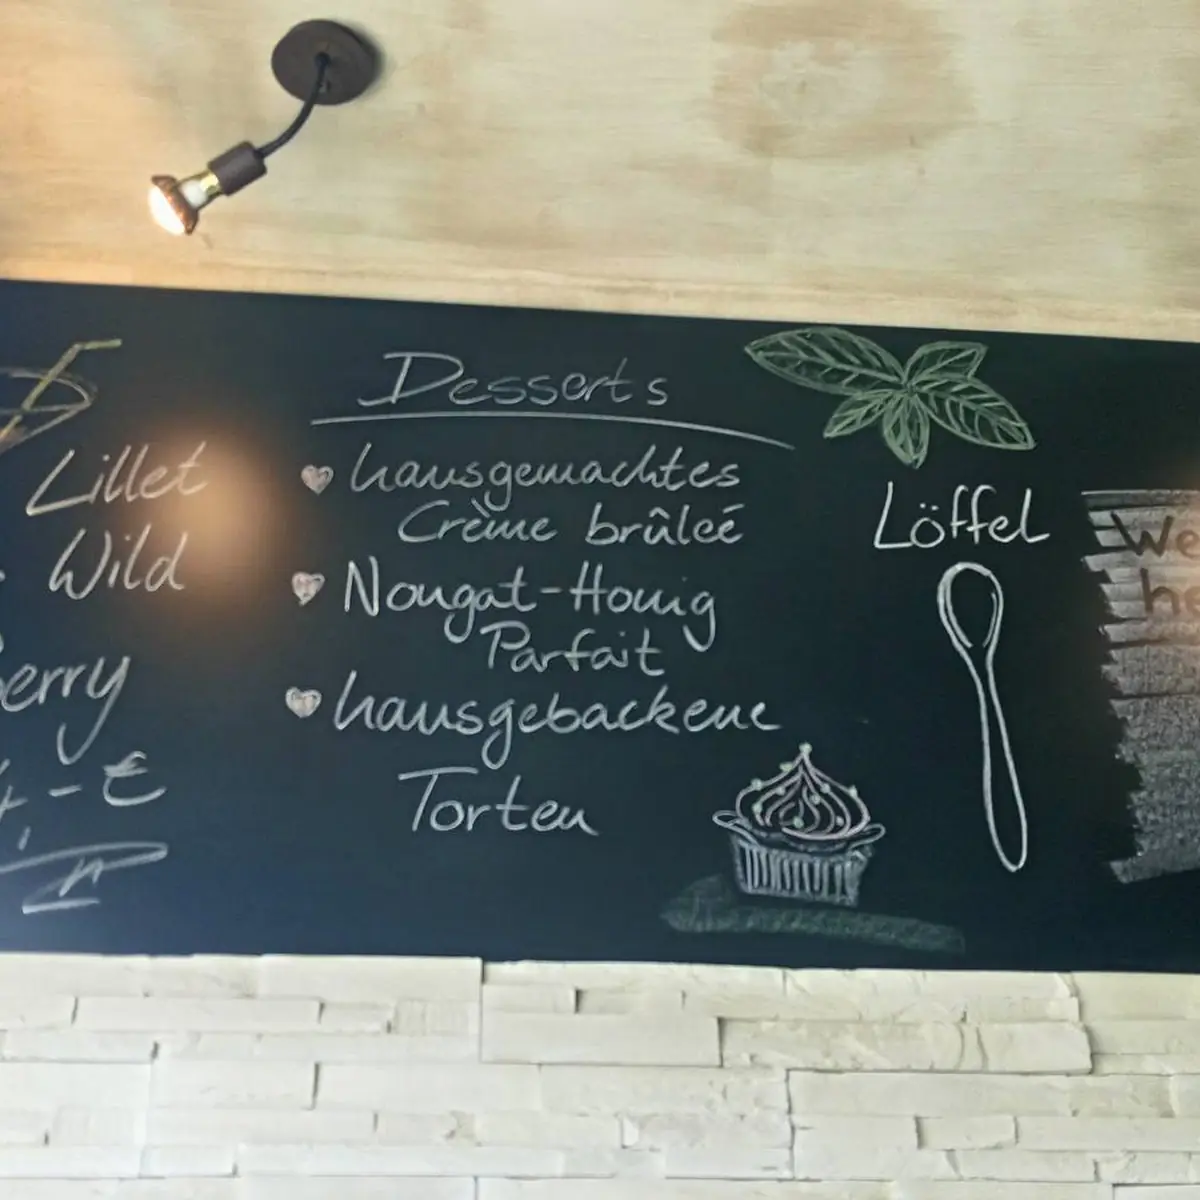 Lillet
Wild
Berry
4,- €
Desserts
hausgemachtes
Crème brûleé
Nougat-Honig
Parfait
hausgebackene
Torten
Löffel